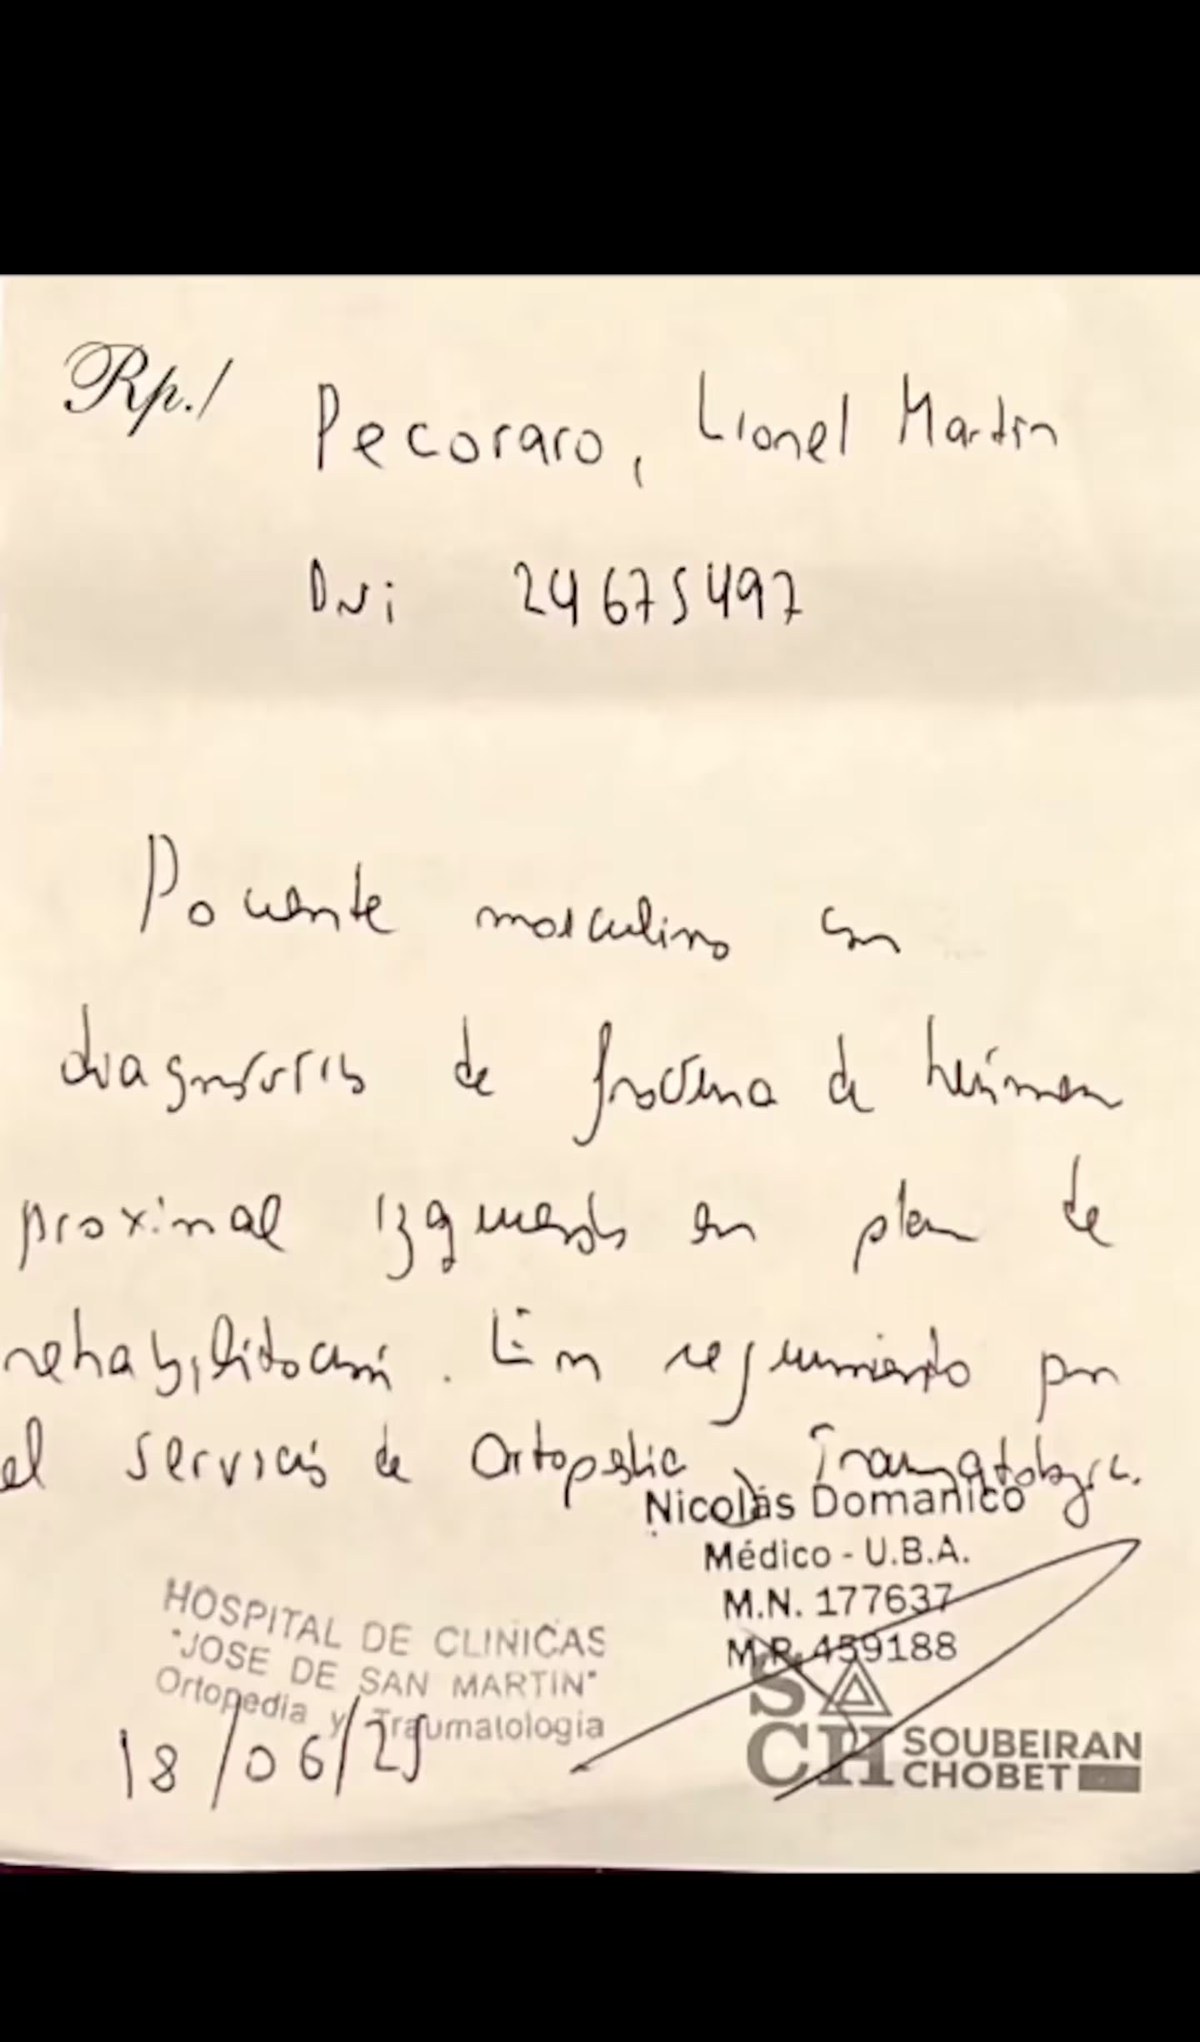 Rp./ Pecoraro, Lionel Martín
DNi 24675497
Paciente masculino con
diagnóstico de fractura de húmero
proximal izquierdo en plan de
rehabilitación. En seguimiento por
el servicio de Ortopedia y Traumatología.
Nicolás Domanico
Médico - U.B.A.
M.N. 177637
M.P. 459188
HOSPITAL DE CLINICAS
"JOSE DE SAN MARTIN"
Ortopedia y Traumatología
18/06/25
SACH SOUBEIRAN
CHOBET